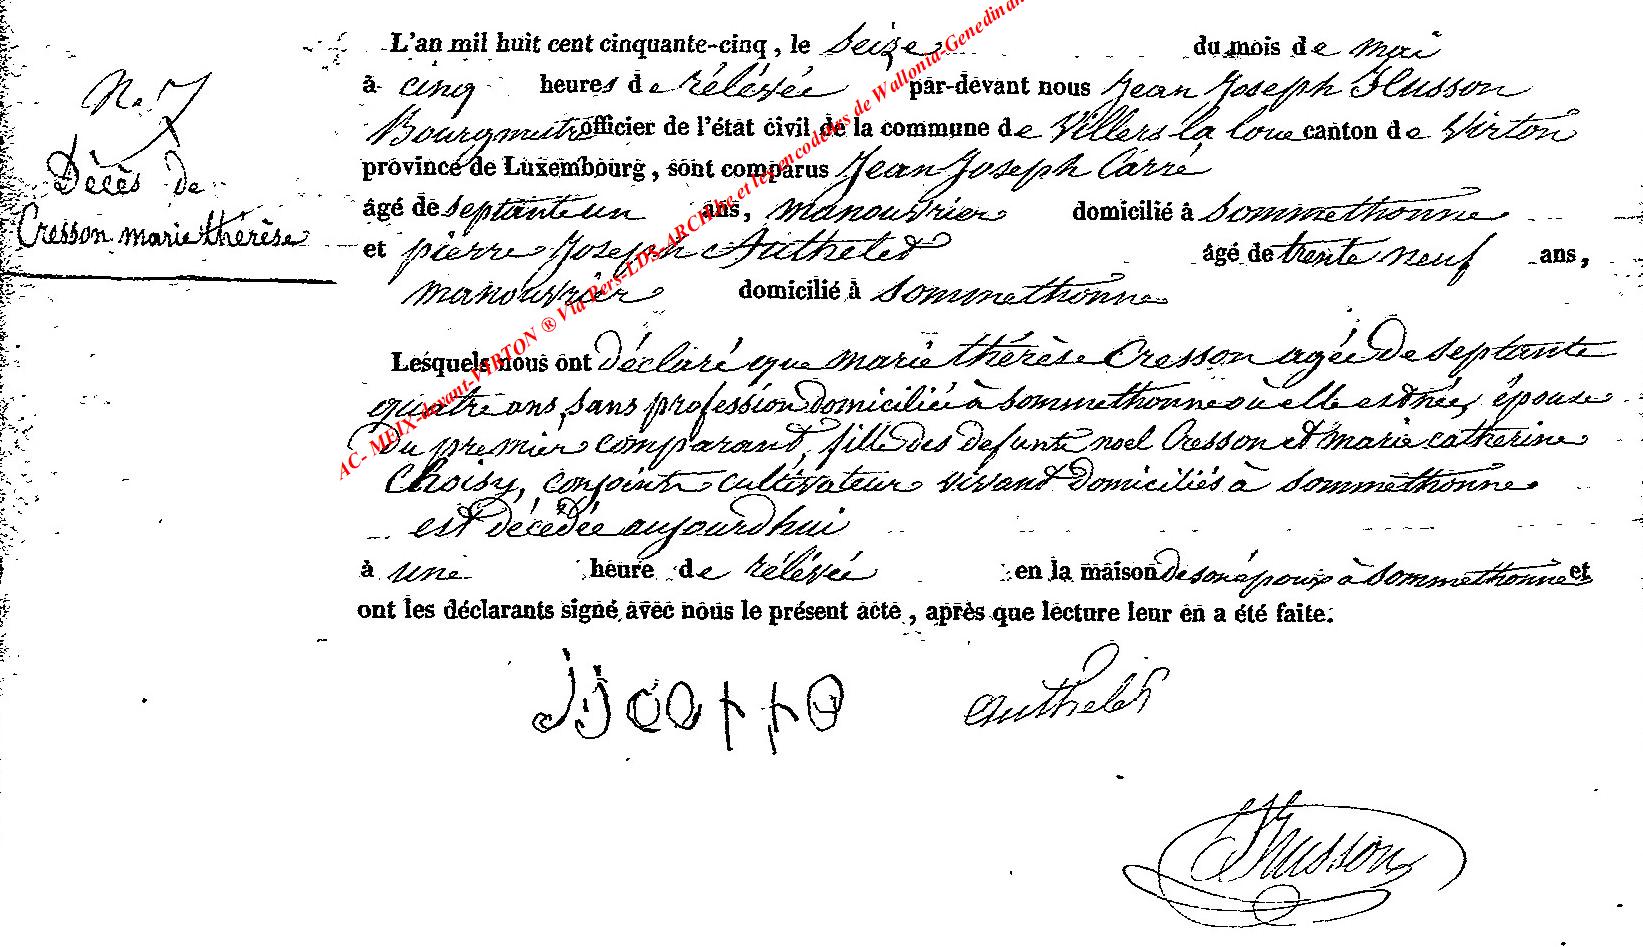 L'an mil huit cent cinquante-cinq, le seize du mois de mai
N.° 7
à cinq heures de rélévée par-devant nous Jean Joseph Husson
Bourgmestre officier de l'état civil de la commune de Villers la loue canton de Virton
Décès de
Cresson marie thérèse
province de Luxembourg, sont comparus Jean Joseph Carré
âgé de septante un ans, manouvrier domicilié à Sommethonne
et pierre Joseph Authelet âgé de trente neuf ans,
manouvrier domicilié à Sommethonne
Lesquels nous ont déclaré que marie thérèse Cresson agée de septante
quatre ans, sans profession domiciliée à Sommethonne où elle est née, épouse
du premier comparant, fille des defunts noel Cresson et marie catherine
Choisy, conjoints cultivateurs vivant domiciliés à Sommethonne
est décédée aujourdhui
à une heure de rélévée en la maison de son époux à Sommethonne et
ont les déclarants signé avec nous le présent acte, après que lecture leur en a été faite.
JJ Carré
Authelet
Husson
AC- MEIX-devant-VIRTON ® Via Pers-LDS-ARCHbe et les encodeurs de Wallonia-Genedinan